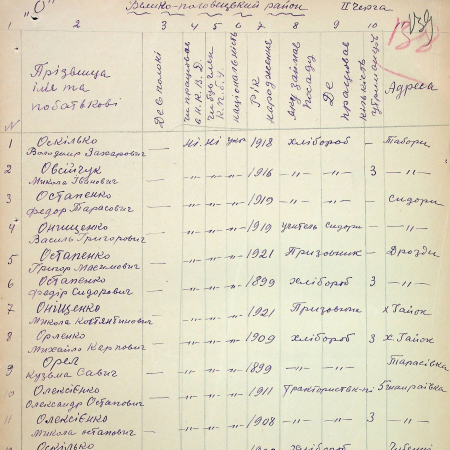 "О" Велико-половецький район II черга
139
1 2 3 4 5 6 7 8 9 10
№ Прізвища ім'я та побатькові Де в полоні чи працював в Н.К.В.Д. чи був член К.П.б.У. національність Рік народження яку займав посаду Де працював кількість утриманців Адреса
1 Оскілько Володимир Захарович — ні ні укр 1918 хлібороб — — Табори
2 Овсійчук Микола Іванович — -"- -"- -"- 1916 -"- — 3 -"-
3 Остапенко Федор Тарасович — -"- -"- -"- 1919 -"- — — Сидори
4 Онищенко Василь Григорович — -"- -"- -"- 1919 учитель Сидори — -"-
5 Остапенко Григор Максимович — -"- -"- -"- 1921 Призовник — — Дрозди
6 Остапенко Федір Сидорович — -"- -"- -"- 1899 хлібороб 3 -"-
7 Оніщенко Микола Костянтинович — -"- -"- -"- 1921 Призовник — х Гайок
8 Орленко Михайло Карпович — -"- -"- -"- 1909 хлібороб 3 х. Гайок
9 Орел Кузьма Савич — -"- -"- -"- 1899 -"- — — Тарасівка
10 Олексієнко Олександр Остапович — -"- -"- -"- 1911 Тракторист
11 Олексієнко Микола Остапович — -"- -"- -"- 1908 -"- -"- 3 -"-
Оскілько хлібороб